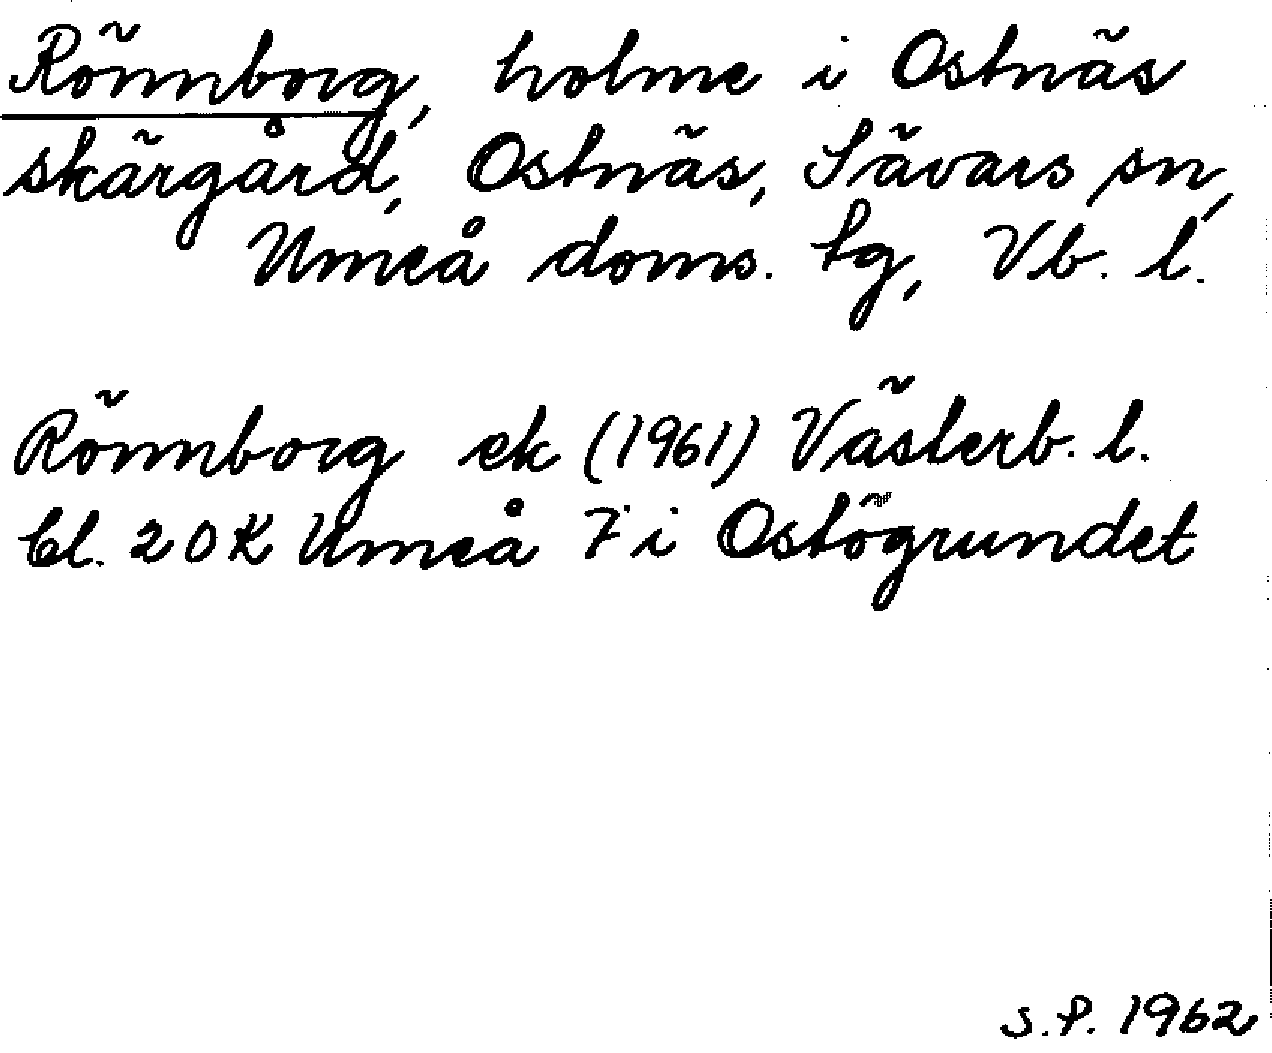 Rönnborg, holme i Ostnäs
skärgård, Ostnäs, Sävars sn,
Umeå doms. tg, Vb. l.
Rönnborg ek (1961) Västerb. l.
bl. 20K Umeå 7 i Ostögrundet
S.P. 1962